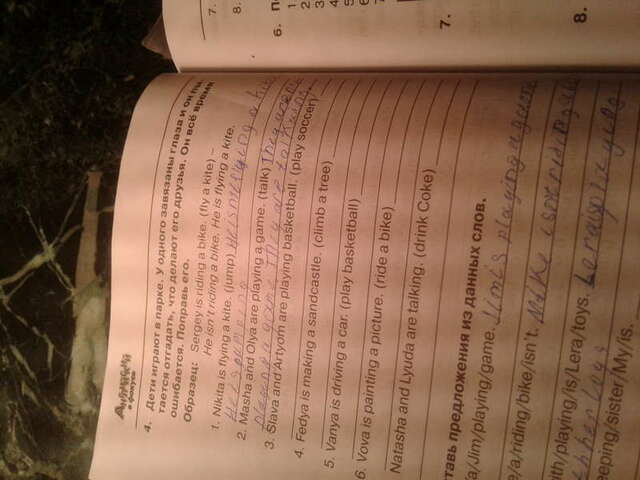 7.
8.
6. П
1
2
3
4
5
6
7.
8.
Английский
в фокусе
4. Дети играют в парке. У одного завязаны глаза и он пы-
тается отгадать, что делают его друзья. Он всё время
ошибается. Поправь его.
Образец: Sergey is riding a bike. (fly a kite) –
He isn't riding a bike. He is flying a kite.
1. Nikita is flying a kite. (jump) He isn't flying a kite
He is jumping
2. Masha and Olya are playing a game. (talk) They are
playing a game They are talking
3. Slava and Artyom are playing basketball. (play soccer)
4. Fedya is making a sandcastle. (climb a tree)
5. Vanya is driving a car. (play basketball)
6. Vova is painting a picture. (ride a bike)
Natasha and Lyuda are talking. (drink Coke)
ставь предложения из данных слов.
a/Jim/playing/game. Jim is playing a game
e/a/riding/bike/isn't. Mike isn't riding a
ith/playing/is/Lera/toys. Lera is playing
eeping/sister/My/is.